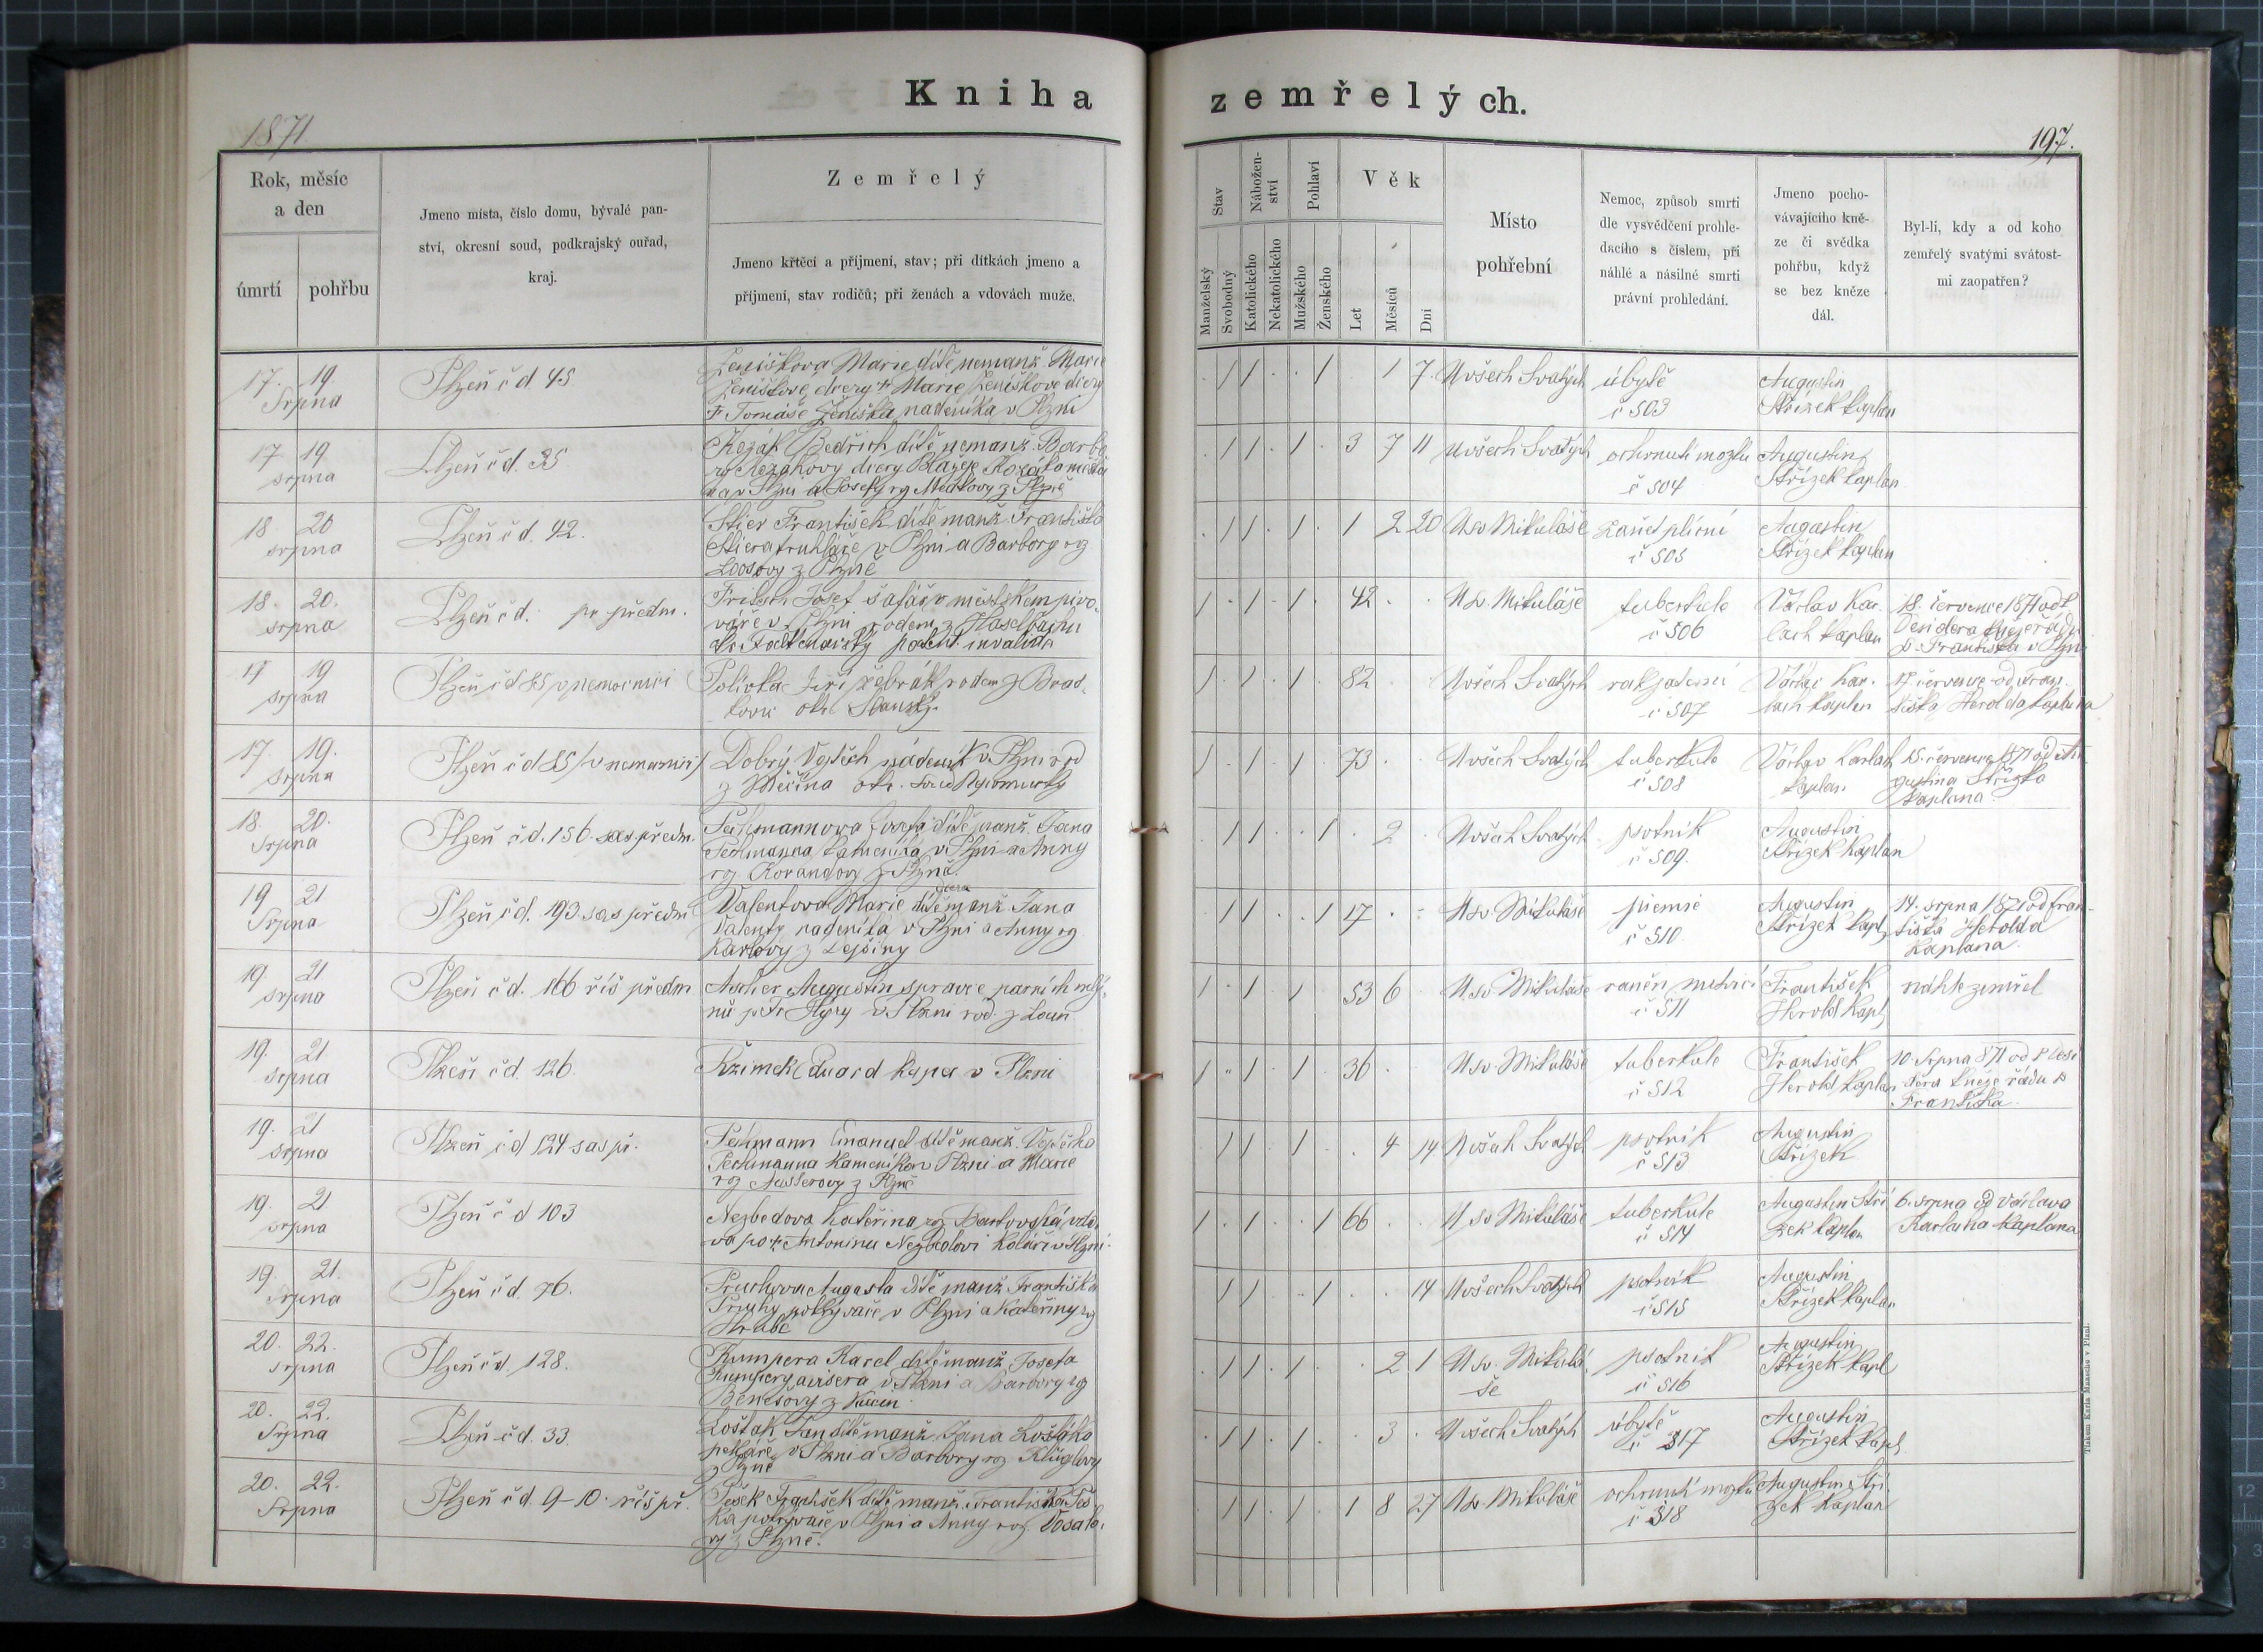 Kniha
zemřelých.
1871.
197.
Rok, měsíc
a den
úmrtí
pohřbu
Jmeno místa, číslo domu, bývalé pan-
ství, okresní soud, podkrajský ouřad,
kraj.
Zemřelý
Jmeno křtěcí a příjmení, stav; při dítkách jmeno a
příjmení, stav rodičů; při ženách a vdovách muže.
Stav
Manželský
Svobodný
Nábožen-
ství
Katolického
Nekatolického
Pohlaví
Mužského
Ženského
Věk
Let
Měsíců
Dní
Místo
pohřební
Nemoc, způsob smrti
dle vysvědčení prohle-
dacího s číslem, při
náhlé a násilné smrti
právní prohledání.
Jmeno pocho-
vávajícího kně-
ze či svědka
pohřbu, když
se bez kněze
dál.
Byl-li, kdy a od koho
zemřelý svatými svátost-
mi zaopatřen?
17. 19.
Srpna
Plzeň č d 45.
Ženíškova Marie dítě nemanž. Marie
Ženíškove, dcery † Marie Ženíškove dcery
† Tomáše Ženíška, nadeníka v Plzni
1 7. U všech Svatých
úbytě
č 503
Augustin
Střízek kaplan
17 19
srpna
Plzeň č d. 35
Kozák Bedřich dítě nemanž. Barbo
ry Kozákovy dcery Blažeje Kozáka
v Plzni a Josefy z Plzně
3 7 11 U všech Svatých
ochrnutí mozku
č 504
Augustin
Střízek kaplan
18 20
srpna
Plzeň č d. 42.
Stier František dítě manž. Františka
Stiera truhláře v Plzni a Barbory roz
Loosovy z Plzně
1 2 20 U sv Mikuláše
zánět plicní
č 505
Augustin
Střízek kaplan
18. 20.
srpna
Plzeň č d. pr. předm.
Josef šafář v městském pivo-
váře v Plzni rodem z Haselbachu
patent. invalida
42 U sv. Mikuláše
tuberkule
č 506
Václav Kar-
lach kaplan
18. července 1871 od P.
Desidera kněze řádu
s. Františka v Plzni
17 19
srpna
Plzeň č d 85 v nemocnici
Polívka Jiří žebrák rodem z Bras-
kovic okr. Slanský.
82 U všech Svatých
rak jaterní
č 507
Václav Kar-
lach kaplan
17 července od Fran-
tiška Herolda kaplana
17. 19.
srpna
Plzeň č d 85 /v nemocnici/
Dobrý Vojtěch nádeník v Plzni rod
z Měčína okr.
73 U všech Svatých
tuberkule
č 508
Václav Karlach
kaplan.
15. července 1871 od Au
gustina Střízka
kaplana.
18. 20.
Srpna
Plzeň č d. 156. sas předm.
Pechmannowa Josefa dítě manž. Jana
Pechmanna kameníka v Plzni a Anny
roz Korandovy z Plzně.
2 U všech Svatých
psotník
č 509.
Augustin
Střízek kaplan
19 21
Srpna
Plzeň č d. 193. sas předm
dcera
Valentova Marie dítě manž Jana
Valenty nadeníka v Plzni a Anny roz
Karlovy z
17 U sv. Mikuláše
piemie
č 510.
Augustin
Střízek kapl
14. srpna 1871 od Fran-
tiška Herolda
kaplana.
19. 21
srpna
Plzeň č d. 166 říš předm
Ascher Augustin spravce parních mlý-
nů p. Fr. v Plzni rod. z Loun
53 6 U sv Mikuláše
raněn mrtvicí
č 511
František
Herold Kapl
náhle zemřel
19. 21
srpna
Plzeň č d. 126.
Kžimek Eduard kupec v Plzni
36 U sv. Mikuláše
tuberkule
č 512
František
Herold Kaplan
10 Srpna 871 od P. Desi
dera kněze řádu s
Františka.
19. 21
srpna
Plzeň č d 124 sas př.
Pechmann Emanuel dítě manž. Vojtěcha
Pechmanna kameníka v Plzni a Marie
roz z Plzně
4 14 U všech Svatých
psotník
č 513
Augustin
Střízek
19. 21
srpna
Plzeň č d 103
Nezbedova Kateřina roz Bartovská, vdo-
va po † Antoninu Nezbedovi koláři v Plzni.
66 U sv Mikuláše
tuberkule
č 514
Augustin Stří
zek kaplan
6. srpna od Václava
Karlacha kaplana
19. 21.
srpna
Plzeň č d. 76.
Pruchova Augusta dítě manž. Františka
Pruchy pokrývače v Plzni a Kateřiny roz
Hrabě
14 U všech Svatých
psotník
č 515
Augustin
Střízek kaplan
20. 22.
srpna
Plzeň č d. 128.
Kumpera Karel dítě manž. Josefa
Kumpery v Plzni a Barbory roz
Benešovy z
2 1 U sv. Mikulá-
še
psotník
č 516
Augustin
Střízek kapl
20. 22.
Srpna
Plzeň č d. 33.
Lošťák Jan dítě manž. Jana Lošťáka
pekaře v Plzni a Barbory roz Klüglovy
z Plzně
3 U všech Svatých
úbytě
č 517
Augustin
Střízek kapl.
20. 22.
Srpna
Plzeň č d. 9-10. říš př.
Pešek František dítě manž. Františka Peš
ka pokrývače v Plzni a Anny roz. Vosatk-
y z Plzně.
1 8 27 U sv. Mikuláše
ochrnutí mozku
č 518
Augustin Stří-
zek kaplan
Tiskem Karla Maasche v Plzni.